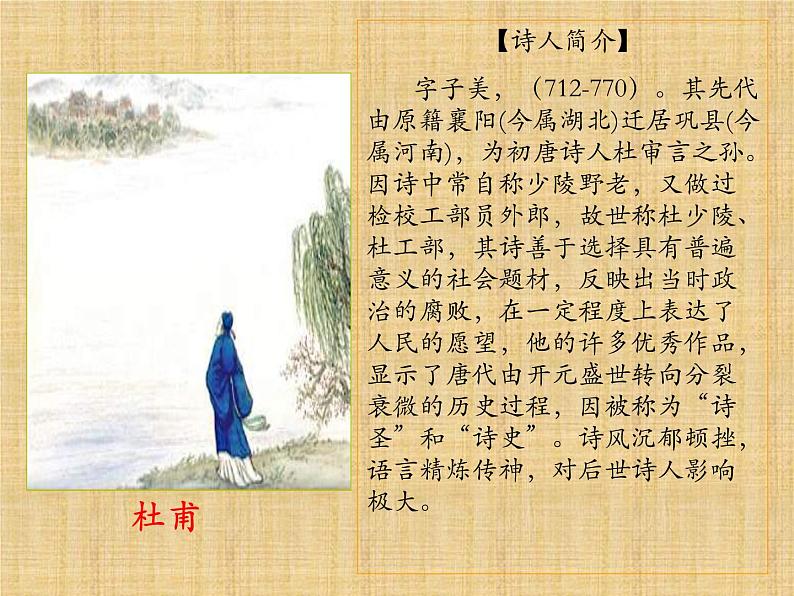 【诗人简介】
字子美，（712-770）。其先代
由原籍襄阳(今属湖北)迁居巩县(今
属河南)，为初唐诗人杜审言之孙。
因诗中常自称少陵野老，又做过
检校工部员外郎，故世称杜少陵、
杜工部，其诗善于选择具有普遍
意义的社会题材，反映出当时政
治的腐败，在一定程度上表达了
人民的愿望，他的许多优秀作品，
显示了唐代由开元盛世转向分裂
衰微的历史过程，因被称为“诗
圣”和“诗史”。诗风沉郁顿挫，
语言精炼传神，对后世诗人影响
极大。
杜甫